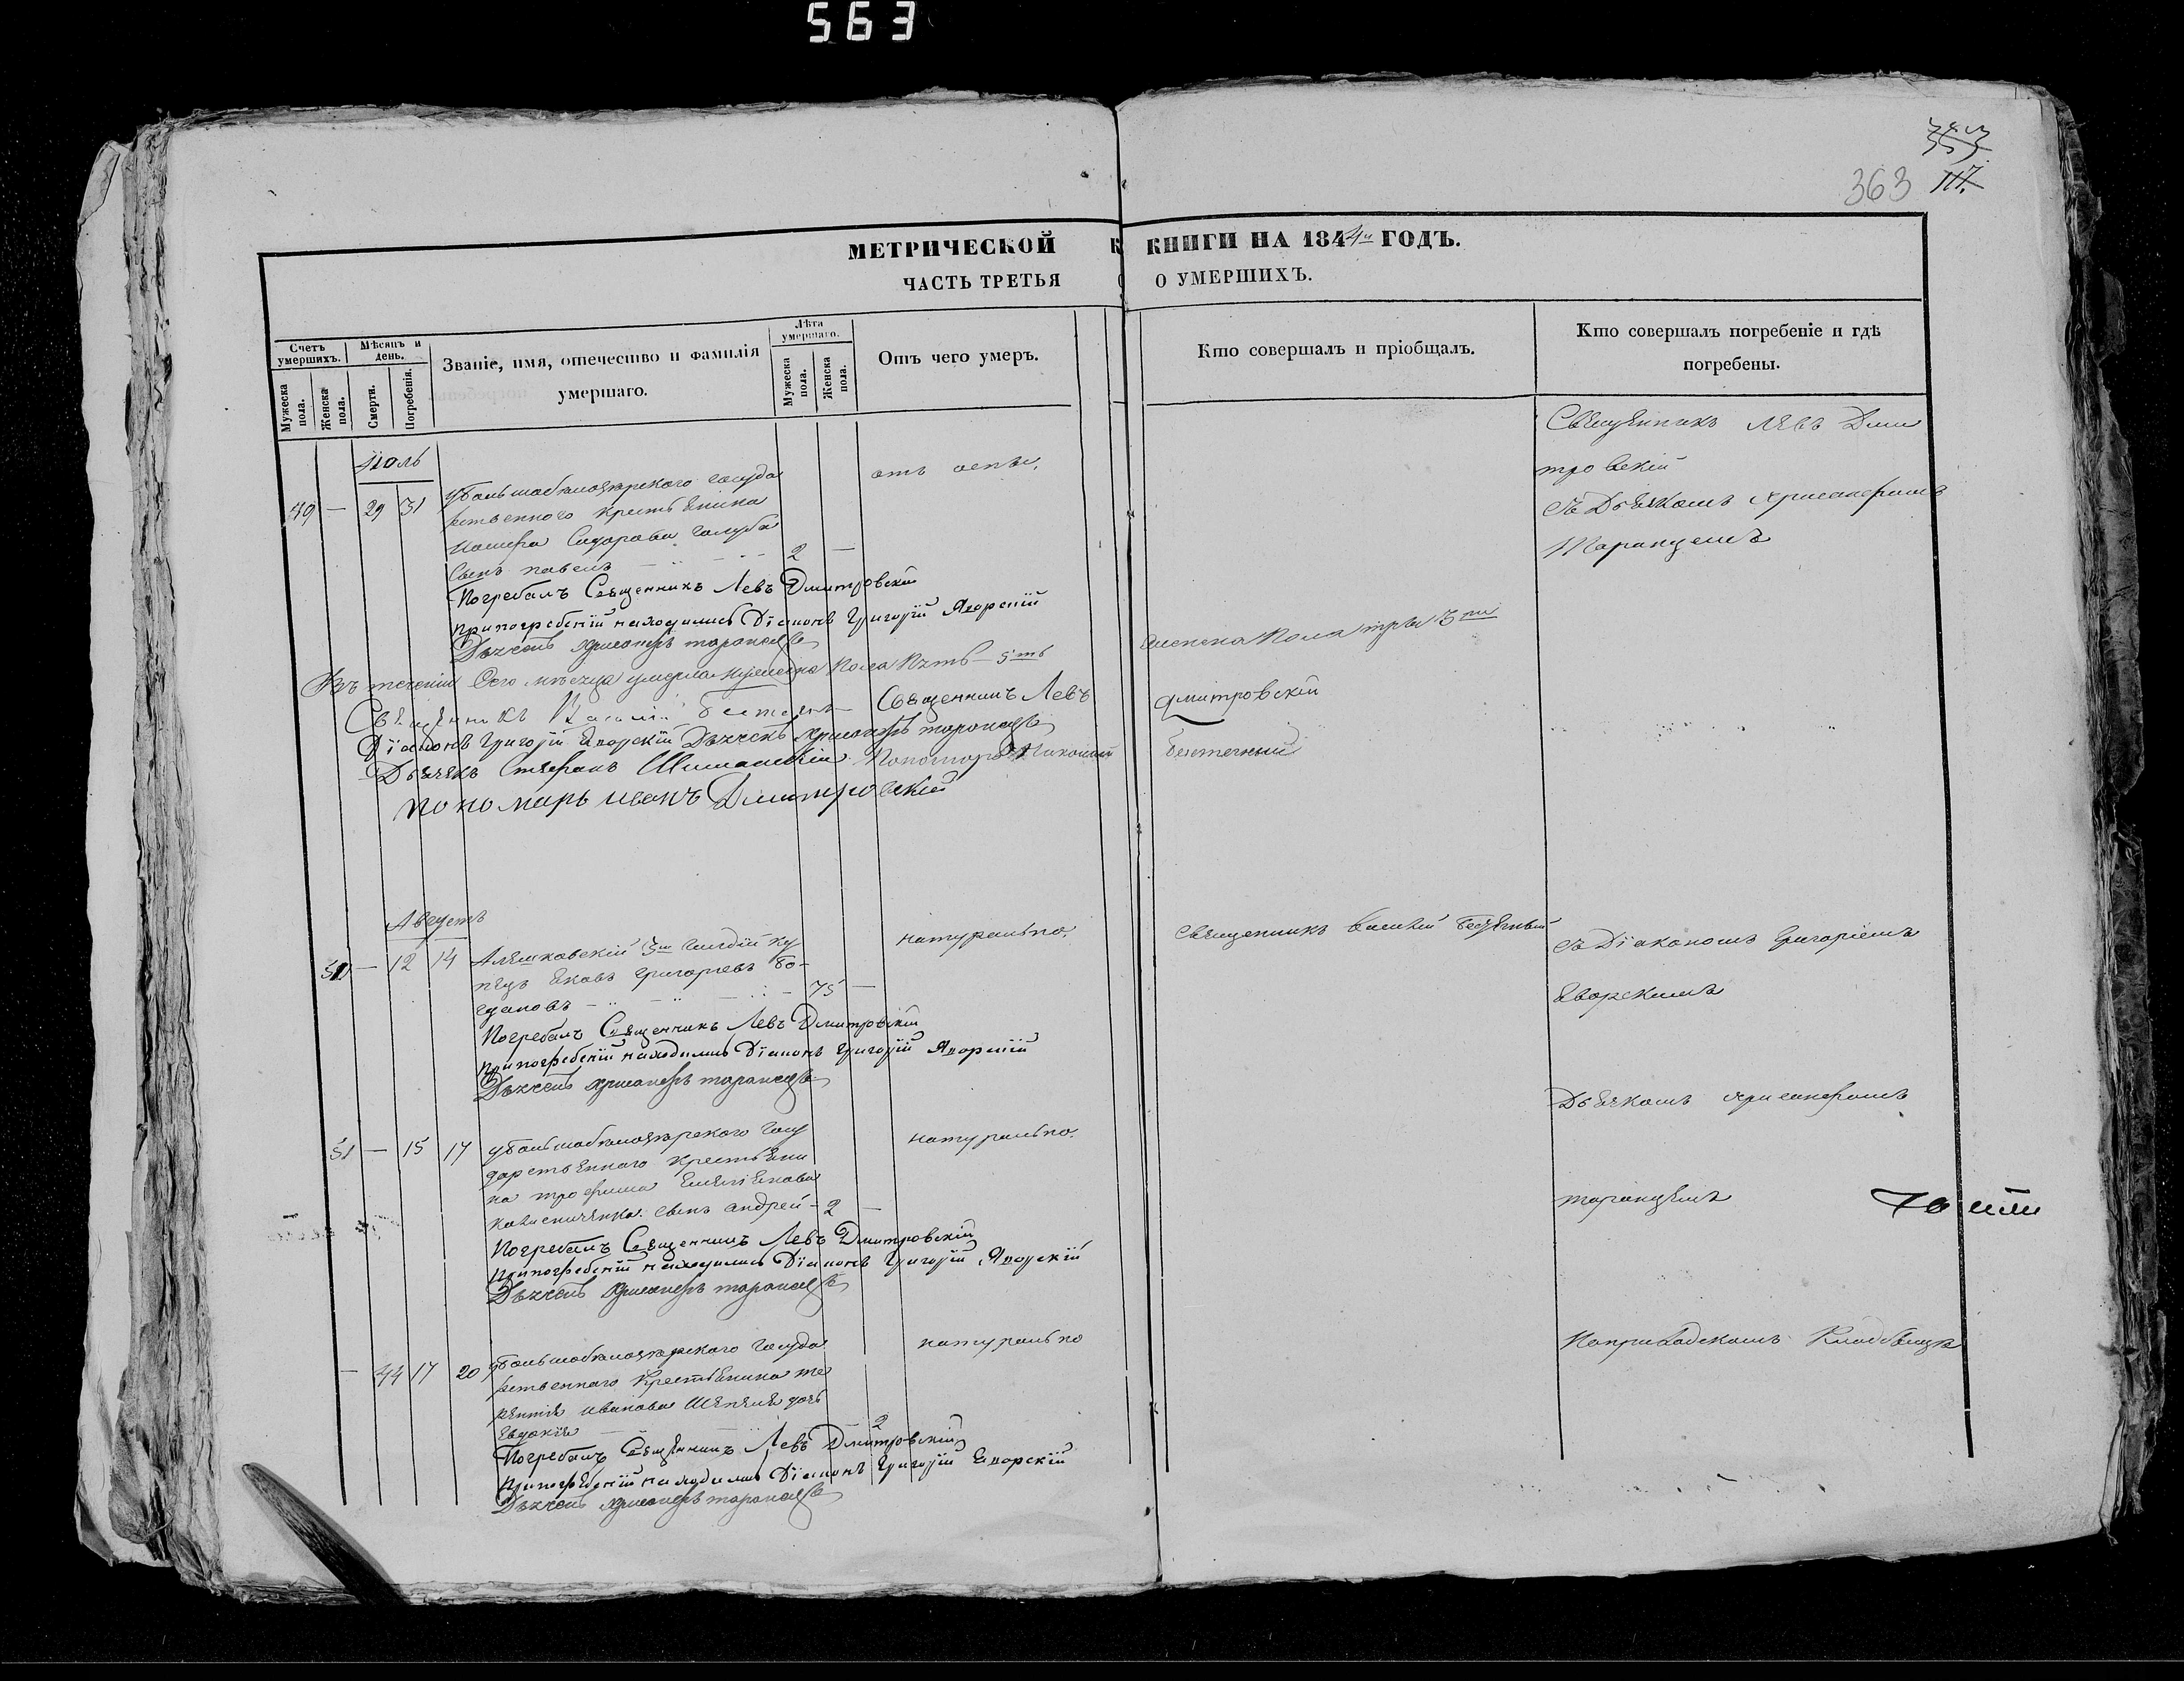 563
363
МЕТРИЧЕСКОЙ КНИГИ НА 1844й ГОДЪ.
ЧАСТЬ ТРЕТЬЯ О УМЕРШИХЪ.
Счетъ умершихъ.
Мужеска пола.
Женска пола.
Мѣсяцъ и день.
Смерти.
Погребенія.
Званіе, имя, отечество и фамилія умершаго.
Лѣта умершаго.
Мужеска пола.
Женска пола.
Отъ чего умеръ.
Кто совершалъ и пріобщалъ.
Кто совершалъ погребеніе и гдѣ погребены.
Іюль
49 — 29 31
государ
ственного крестьянина
Сидорова Голуба
Сынъ павелъ 2 —
отъ оспы.
Погребалъ Священникъ Левъ Дмитровскій
при погребеніи находились Діаконъ Григорій Яворскій
Дьячекъ Хрисанфъ таранецъ
Священникъ Левъ Дми
тровскій
съ Дьячкомъ Хрисанфомъ
Таранцемъ
Въ теченіи Сего мѣсяца умерло мужеска Пола Пять 5ть женска Пола три 3ри
Священникъ Василій Священникъ Левъ Дмитровскій
Діаконъ Григорій Яворскій Дьячекъ Хрисанфъ таранецъ
Дьячекъ Стефанъ Пономарь Николай
пономарь иванъ Дмитровскій
Августъ
50 — 12 14
Алешковскій 3й Гильдіи ку
пецъ Яковъ григорьевъ Бо-
гдановъ — 75 —
натурально.
Священникъ василій
Погребалъ Священникъ Левъ Дмитровскій
при погребеніи находились Діаконъ Григорій Яворскій
Дьячекъ Хрисанфъ таранецъ
съ Діакономъ Григоріемъ
Яворскимъ
Дьячкомъ Хрисанфомъ
таранцемъ
51 — 15 17
госу
дарственного Крестьяни
на трофима
сынъ андрей - 2 —
натурально.
Погребалъ Священникъ Левъ Дмитровскій
при погребеніи находились Діаконъ Григорій Яворскій
Дьячекъ Хрисанфъ таранецъ
— 44 17 20
государ
ственного Крестьянина те
рентія иванова дочь
Евдокія — 2
натурально
Погребалъ Священникъ Левъ Дмитровскій
при погребеніи находились Діаконъ Григорій Яворскій
Дьячекъ Хрисанфъ таранецъ
На приходскомъ Кладбищѣ